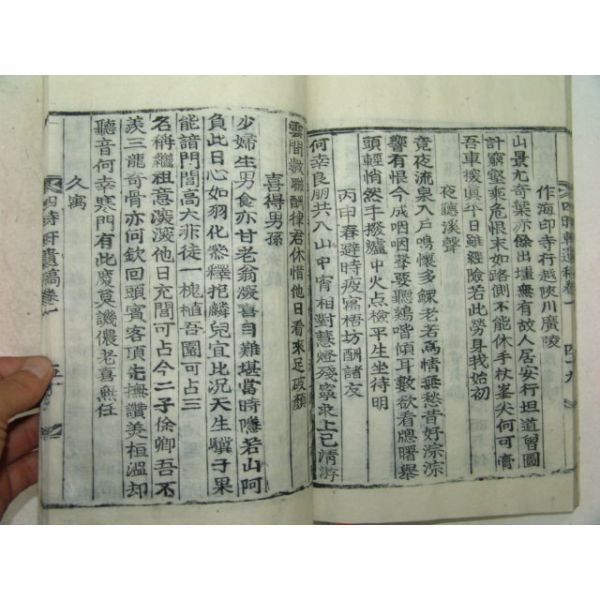 作海印寺行越陜川廣陵
山景尤奇葉亦除出壚無有故人居安行坦道曾圖
計窮壑乘危恨末如路側不能休手杖峯尖何可膏
吾車援與平日雖經險若此勞身我始初
夜聽溪聲
竟夜流泉入戶鳴懷多鰥老若爲情無愁昔好淙淙
響有恨今成咽咽聲耍聽鷄喈傾耳數欲看牕曙擧
頭輕悄然手撥爐中火点檢平生坐待明
丙申春避時疫寓梧坊酬諸友
何幸良朋共入山中宵相對慧燈殘寥永上已淸游
雲間數聯酬律君休惜他日看來足破顏
喜得男孫
少婦生男食亦甘老翁凌喜自難堪當時隱若山阿
負此日心如羽化𢠢釋抱麟兒宜比况天生驥子果
能諳門閭高大非徒一槐植吾園可占三
名稱繼祖意渼渼他日充閭可占今二子徐卿吾不
羨三龍奇骨亦何欽回頭賓客頂先撫讚美桓溫却
聽音何幸寒門有此慶莫譏儂老喜無任
久寓
四時軒遺稿卷一